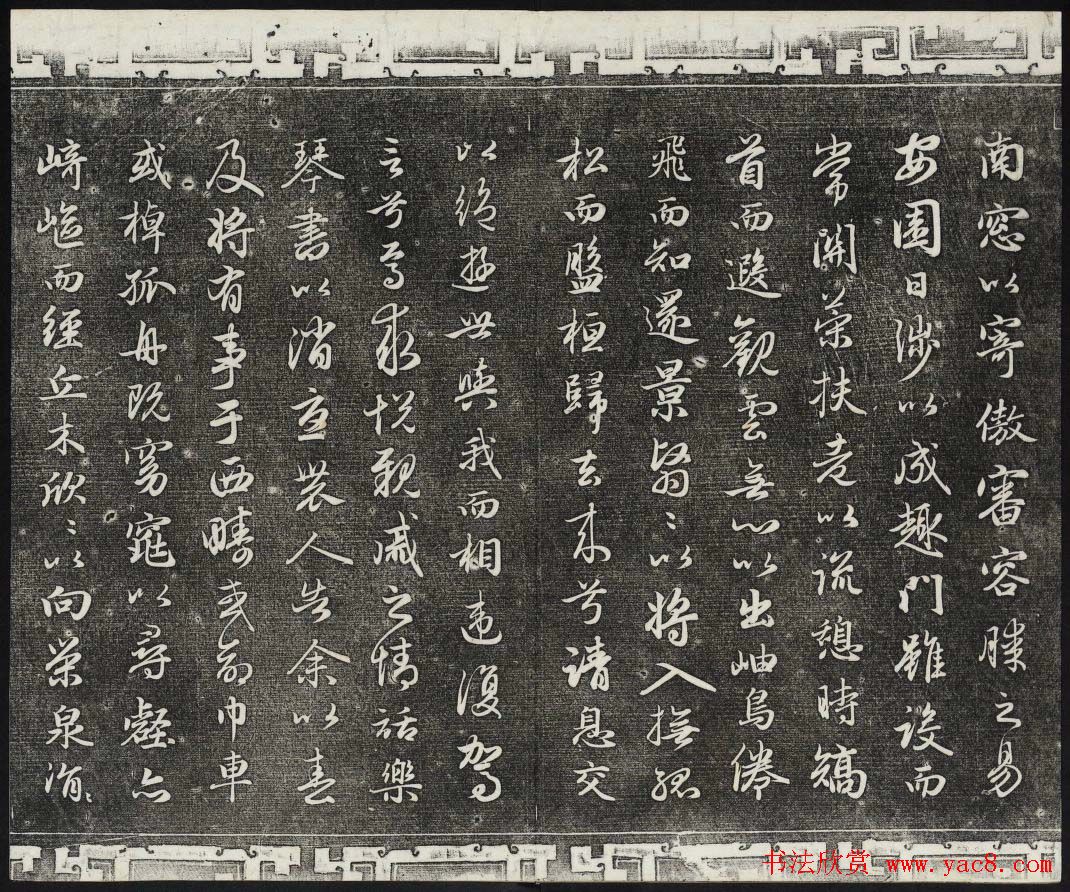 南窓以寄傲審容膝之易
安園日涉以成趣門雖設而
常關策扶老以流憩時矯
首而遐觀雲無心以出岫鳥倦
飛而知還景翳〻以將入撫孤
松而盤桓歸去來兮請息交
以絕遊世與我而相違復駕
言兮焉求悅親戚之情話樂
琴書以消憂農人告余以春
及將有事于西疇或命巾車
或棹孤舟既窈窕以尋壑亦
崎嶇而經丘木欣〻以向榮泉涓〻
书法欣赏 www.yac8.com